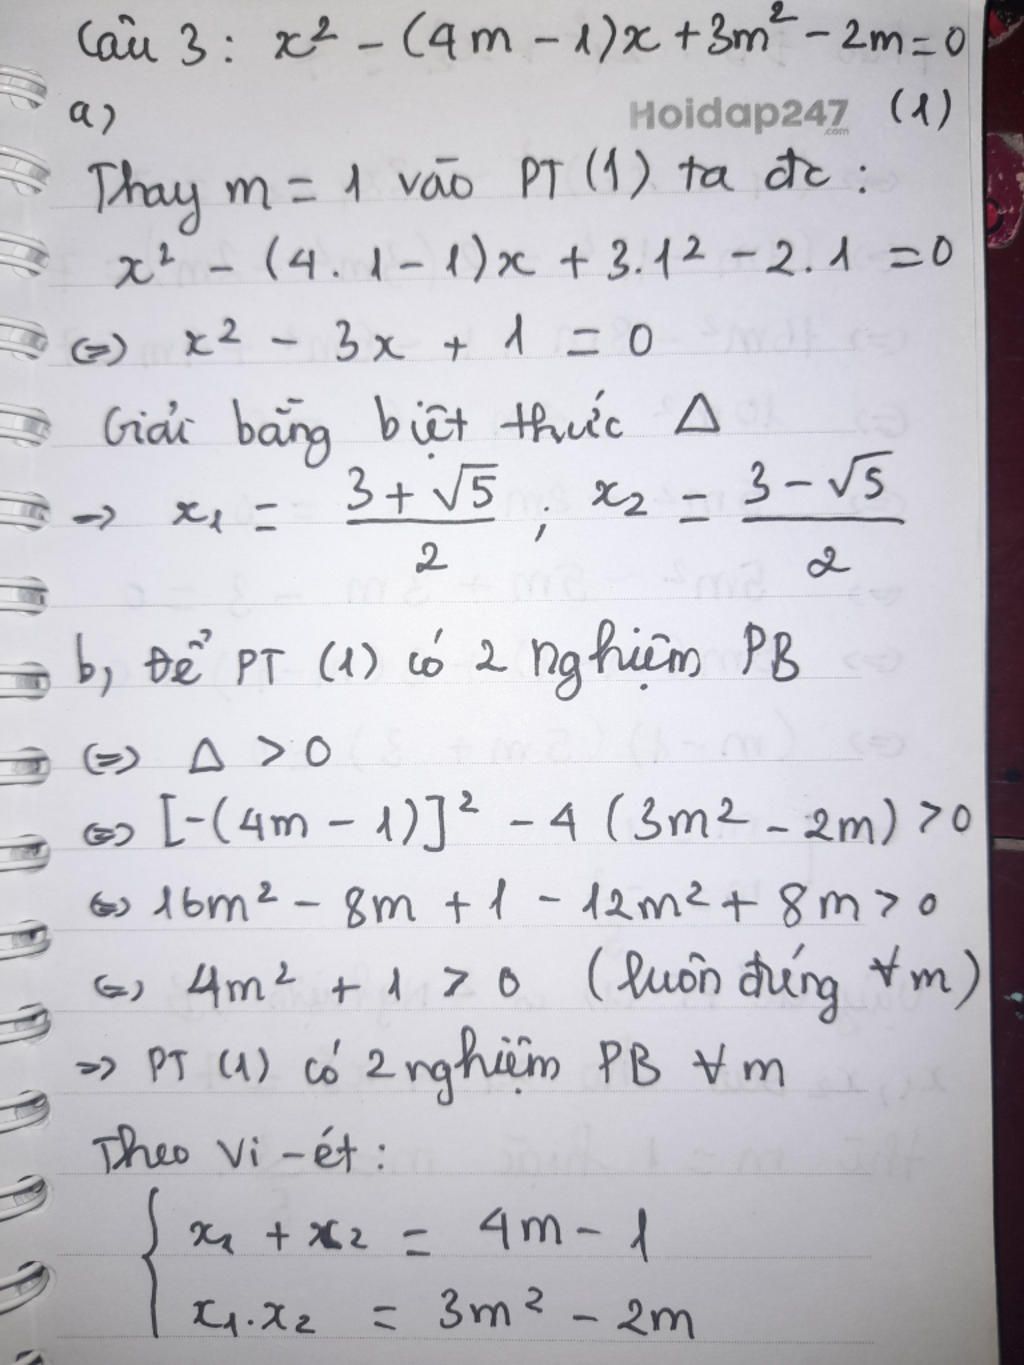 Câu 3: x² - (4m - 1)x + 3m² - 2m = 0
a, Hoidap247 .com (1)
Thay m = 1 vào PT (1) ta đc :
x² - (4.1 - 1)x + 3.1² - 2.1 = 0
⇔ x² - 3x + 1 = 0
Giải bằng biệt thức Δ
→ x₁ = (3 + √5)/2 ; x₂ = (3 - √5)/2
b, Để PT (1) có 2 nghiệm PB
⇔ Δ > 0
⇔ [-(4m - 1)]² - 4 (3m² - 2m) > 0
⇔ 16m² - 8m + 1 - 12m² + 8m > 0
⇔ 4m² + 1 > 0 (luôn đúng ∀m)
⇒ PT (1) có 2 nghiệm PB ∀m
Theo Vi-ét :
{ x₁ + x₂ = 4m - 1
x₁.x₂ = 3m² - 2m